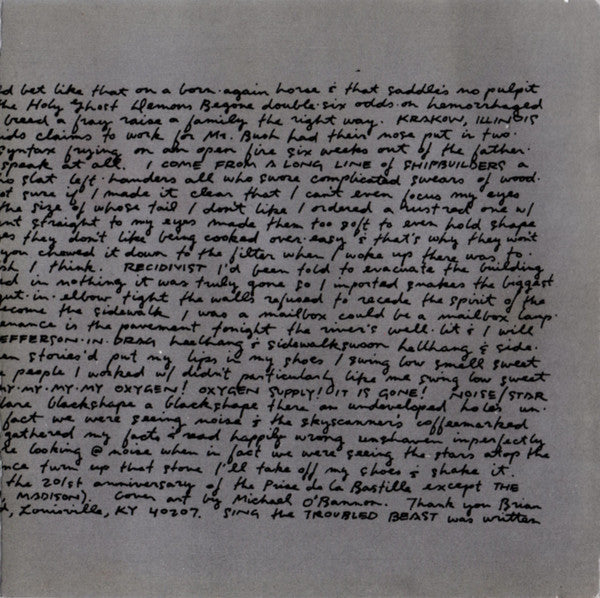 d bet like that on a born.again horse & that saddle's no pulpit
the Holy Ghost Demons Begone double.six odds on hemorrhaged
breed a fray raise a family the right way. KRAKOW, ILLINOIS
ids claims to work for Mr. Bush had their nose put in two.
syntax frying on an open fire six weeks out of the father.
speak at all. I COME FROM A LONG LINE of SHIPBUILDERS a
is slat left.handers all who swore complicated swears of wood.
ot sure if I made it clear that I can't even focus my eyes
the size of whose tail I don't like I ordered a rust red one w/
nt straight to my eyes made them too soft to even hold shape
es they don't like being cooked over.easy & that's why they won't
you chewed it down to the filter when I woke up there was to.
sh I think. RECIDIVIST I'd been told to evacuate the building
d in nothing it was truly gone so I imported snakes the biggest
gut.in.elbow tight the walls refused to recede the spirit of the
ecome the sidewalk I was a mailbox could be a mailbox lamp.
enance is the pavement tonight the river's well.lit & I will
EFFERSON.IN.DRAG heelhang & sidewalkswoon hellhang & side.
en stories'd put my lips in my shoes I swing low smell sweet
e people I worked w/ didn't particularly like me swing low sweet
MY.MY.MY.MY OXYGEN! OXYGEN SUPPLY! IT IS GONE! NOISE/STAR
lare blackshape a blackshape there an undeveloped holes un.
fact we were seeing noise & the skyscanners coffeemarked
gathered my facts & read happily wrong unshaven imperfectly
le looking @ noise when in fact we were seeing the stars atop the
nce turn up that stone I'll take off my shoes & shake it.
the 201st anniversary of the Prise de la Bastille except THE
, MADISON). Cover art by Michael O'Bannon. Thank you Brian
d, Louisville, KY 40207. SING the TROUBLED BEAST was written